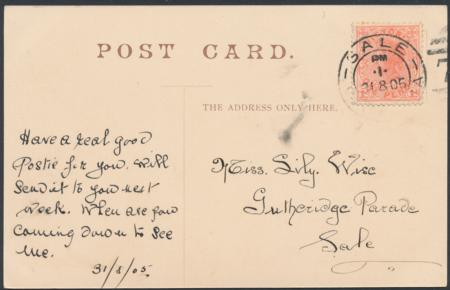 POST CARD.
THE ADDRESS ONLY HERE.
SALE
PM
1
31 8 05
Have a real good
Postie for you. Will
Send it to you next
week. When are you
Coming down to see
me.
31/8/05.
Miss. Lily. Wise
Gutheridge Parade
Sale